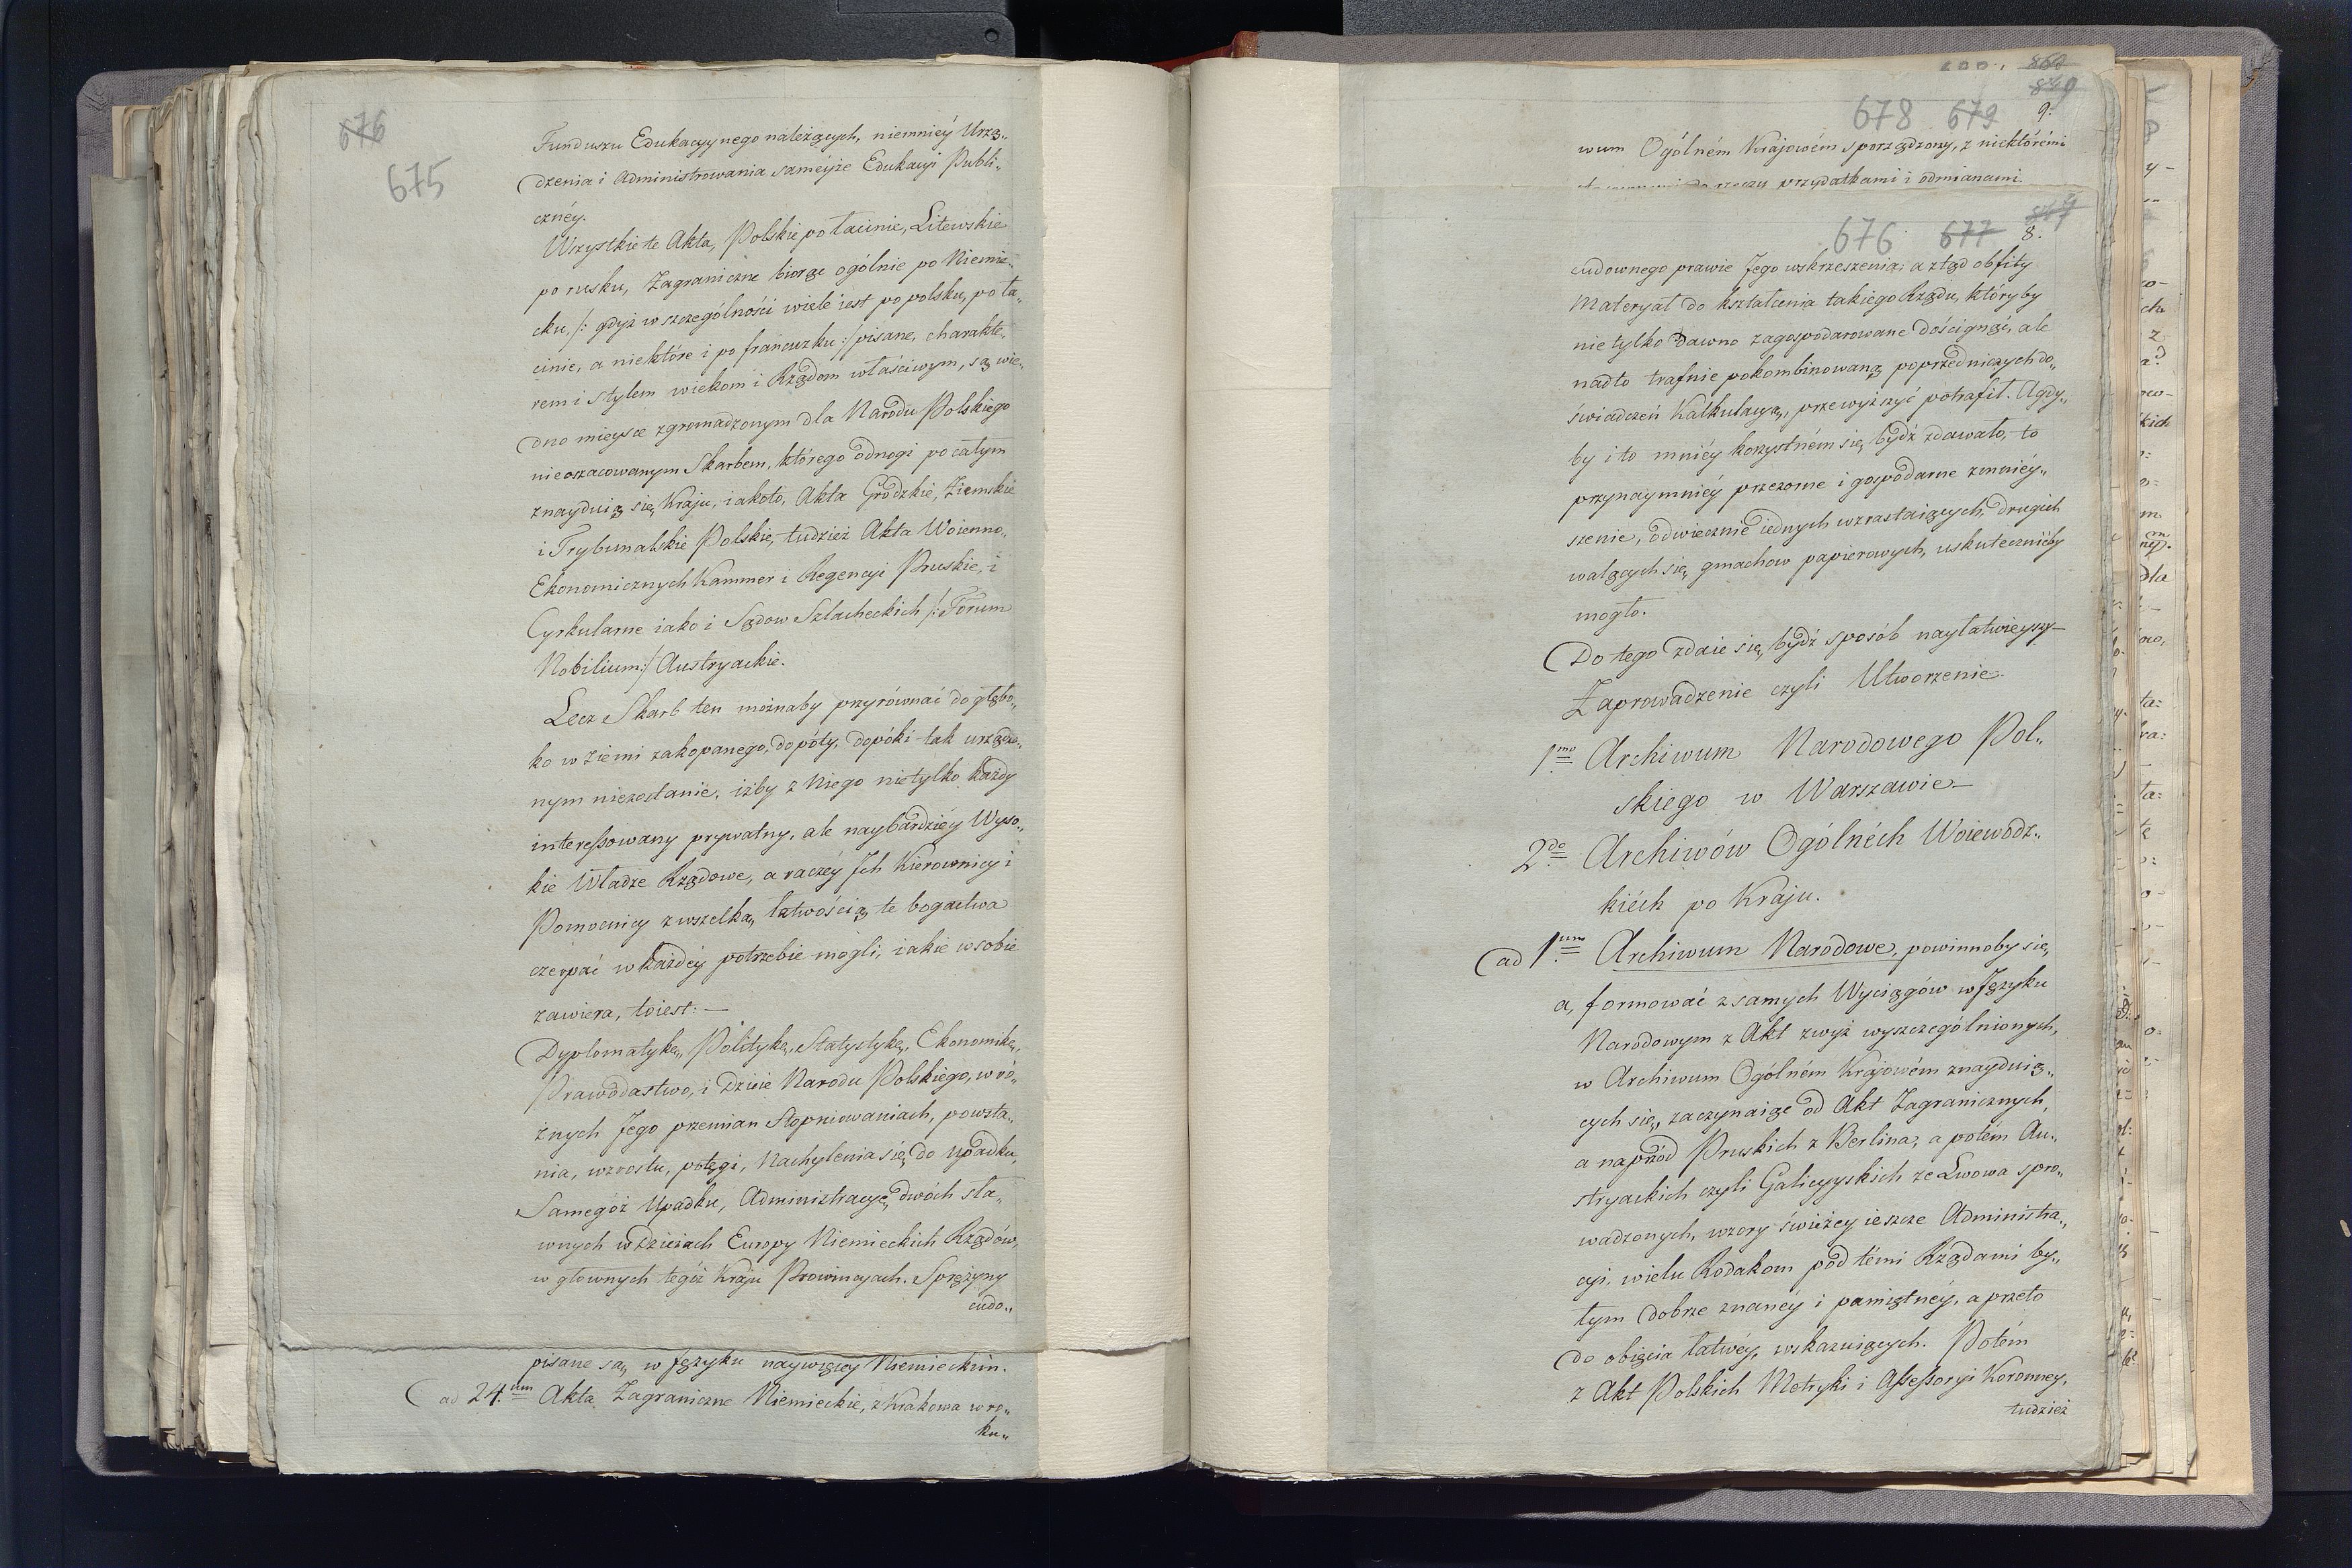 676
675
Funduszu Edukacyynego należących, niemniéy Urzą„
dzenia i Administrowania saméyże Edukacyi Publi„
cznéy.
Wszystkie te Akta, Polskie po łacinie, Litewskie
po rusku, Zagraniczne biorąc ogólnie po Niemie„
cku, /: gdyż w szczególności wiele iest po polsku, po ła„
cinie, a niektóre i po francuzku :/ pisane, charakte„
rem i stylem wiekom i Rządom właściwym, są wie„
dno mieysce zgromadzonym dla Narodu Polskiego
nieoszacowanym Skarbem, którego odnogi po całym
znayduią się Kraju, iakoto, Akta Grodzkie, Ziemskie
i Trybunalskie Polskie, tudzież Akta Woienno„
Ekonomicznych Kammer i Regencyi Pruskie, i
Cyrkularne iako i Sądow Szlacheckich /: Forum
Nobilium :/ Austryackie.
Lecz Skarb ten możnaby przyrównać do głębo„
ko w ziemi zakopanego, dopóty, dopóki tak urządzo„
nym niezostanie, iżby z Niego nietylko każdy
interessowany prywatny, ale naybardziéy Wyso„
kie Władze Rządowe, a raczéy Ich Kierownicy i
Pomocnicy z wszelką łatwością te bogactwa
czerpać w każdéy potrzebie mogli, iakie w sobie
zawiera, toiest: —
Dyplomatykę, Politykę, Statystykę, Ekonomikę,
Prawodastwo, i Dzieie Narodu Polskiego, w ró„
żnych Jego przemian Stopniowaniach, powsta„
nia, wzrostu, potęgi, Nachylenia się do upadku,
Samegóż Upadku, Administracyę dwóch sła„
wnych w dzieiach Europy Niemieckich Rządów,
w głownych tegóż Kraju Prowincyach. Sprężyny
cudo„
pisane są, w Języku naywięcey Niemieckim.
ad 24.um Akta Zagraniczne Niemieckie, z Krakowa w ro„
ku„
849
678 679 9.
wum Ogólném Krajowém sporządzony, z niektórémi
do rzeczy przydatkami i odmianami.
676 677 8.
cudownego prawie Jego wskrzeszenia; a ztąd obfity
Materyał do kształcenia takiego Rządu, któryby
nietylko dawno zagospodarowane doścignąć, ale
nadto trafnie pokombinowaną poprzedniczych do„
świadczeń Kalkulacyą, przewyższyć potrafił. Agdy„
by i to mniéy korzystném się bydź zdawało, to
przynaymniéy przezorne i gospodarne zmniéy„
szenie, odwiecznie iednych wzrastaiących, drugich
walących się gmachow papierowych, uskutecznićby
mogło.
Do tego zdaie się bydź sposób nayłatwieyszy —
Zaprowadzenie czyli Utworzenie
1.mo Archiwum Narodowego Pol„
skiego w Warszawie —
2.do Archiwów Ogólnéch Woiewódz„
kiéch po Kraju.
ad 1.um Archiwum Narodowe, powinnoby się,
a, formować z samych Wyciągów w Języku
Narodowym z Akt zwyż wyszczególnionych,
w Archiwum Ogólném Krajowém znayduią„
cych się, zaczynaiąc od Akt Zagranicznych,
a naprzód Pruskich z Berlina, a potém Au„
stryackich czyli Galicyyskich ze Lwowa spro„
wadzonych, wzory świeżey ieszcze Administra„
cyi, wielu Rodakom pod témi Rządami by„
łym dobrze znanéy i pamiętnéy, a przeto
do obięcia łatwéy, wskazuiących. Potém
z Akt Polskich Metryki i Assessoryi Koronney,
tudzież